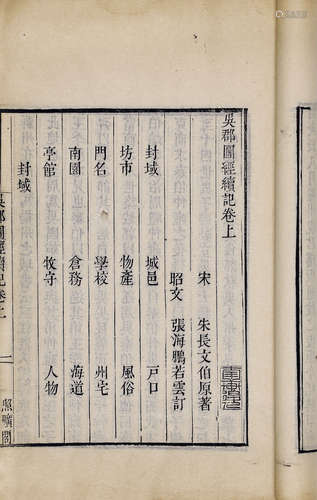 吳郡圖經續記卷上
宋 朱長文伯原著
昭文 張海鵬若雲訂
封域 城邑 戸口
坊市 物產 風俗
門名 學校 州宅
南園 倉務 海道
亭館 牧守 人物
封域
吳郡圖經續記卷上
照曠閣